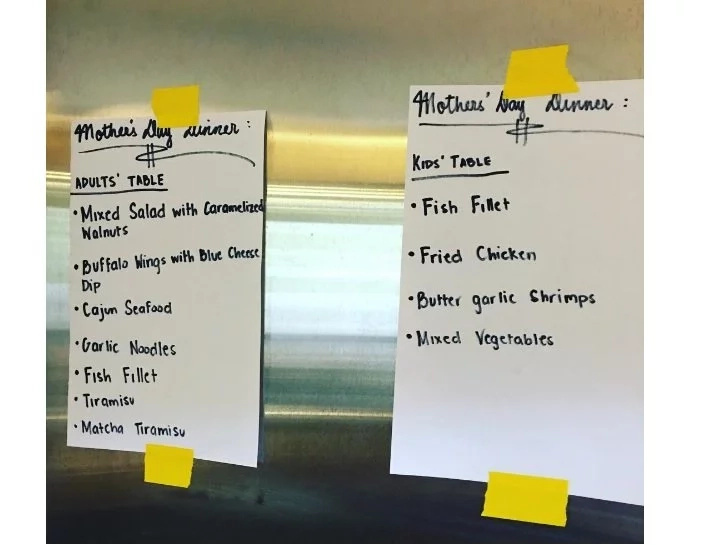 Mother's Day Dinner :
ADULTS' TABLE
• Mixed Salad with Caramelized
Walnuts
• Buffalo Wings with Blue Cheese
Dip
• Cajun Seafood
• Garlic Noodles
• Fish Fillet
• Tiramisu
• Matcha Tiramisu
Mothers' Day Dinner :
KIDS' TABLE
• Fish Fillet
• Fried Chicken
• Butter garlic Shrimps
• Mixed Vegetables